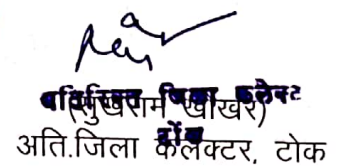 अतिरिक्त जिला कलेक्टर
(सुखराम खोखर)
टोंक
अति.जिला कलेक्टर, टोंक